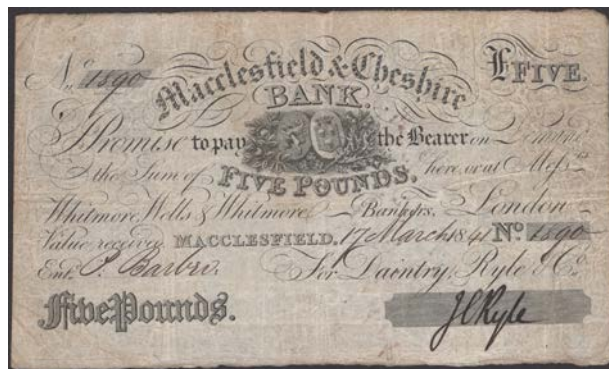 No. 1890
Macclesfield & Cheshire
BANK.
£FIVE.
I Promise to pay the Bearer on Demand
the Sum of FIVE POUNDS. here or at Messrs
Whitmore Wells & Whitmore Bankers. London
Value received MACCLESFIELD. 17 March 1841 No. 1890
Entd. P. Barber. For Daintry, Ryle & Co.
Five Pounds.
J C Ryle